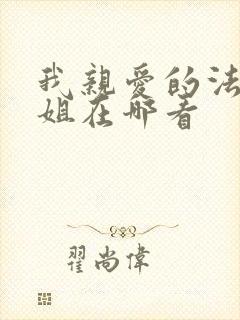 我親愛的法
姐在哪看
翟尚偉